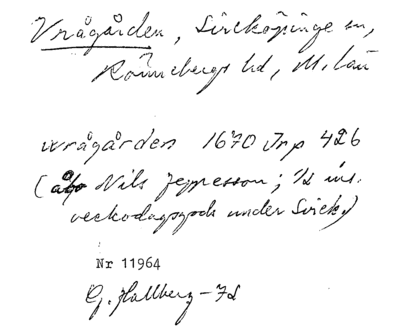 Vrågården, Sireköpinge sn,
Rönnebergs hd, M. län
wrågården 1670 Jrp 426
(åbo Nils Jeppesson; 1/2 ins.
veckodagsgods under Sirek.)
Nr 11964
G. Hallberg - 72